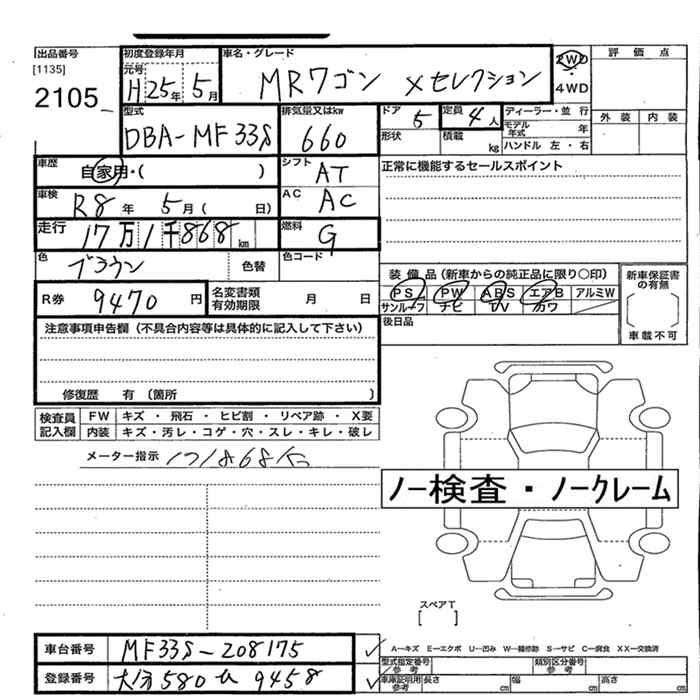 出品番号
[1135]
2105
初度登録年月
元号
H 25年 5月
車名・グレード
MRワゴン Xセレクション
2WD
・
4WD
評価点
外装 内装
型式
DBA-MF33S
排気量又はkw
660
ドア 5
定員 4人
形状
積載 kg
ディーラー・並行
モデル年式 年
ハンドル 左・右
車歴
自家用・( )
シフト AT
正常に機能するセールスポイント
車検
R8年 5月( 日)
AC AC
走行
17万1千868km
燃料 G
色 ブラウン
色替
色コード
装備品(新車からの純正品に限り○印)
PS PW ABS エアB アルミW
サンルーフ ナビ TV カワ
新車保証書の有無
車載不可
R券 9470円
名変書類有効期限 月 日
後日品
注意事項申告欄(不具合内容等は具体的に記入して下さい)
修復歴 有(箇所 )
検査員記入欄
FW キズ・飛石・ヒビ割・リペア跡・X要
内装 キズ・汚レ・コゲ・穴・スレ・キレ・破レ
メーター指示 171868km
ノー検査・ノークレーム
スペアT
[ ]
車台番号 MF33S-208175
登録番号 580 9458
A-キズ E-エクボ U-凹み W-補修跡 S-サビ C-腐食 XX-交換済
型式指定番号/参考
類別区分番号
車庫証明用参考 長さ cm 幅 cm 高さ cm